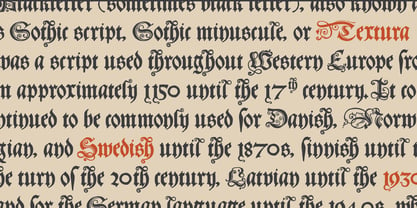 Blackletter (sometimes black letter), also known
s Gothic script, Gothic minuscule, or Textura
was a script used throughout Western Europe fro
n approximately 1150 until the 17th century. It co
ntinued to be commonly used for Danish, Norw
gian, and Swedish until the 1870s, finnish until t
he turn of the 20th century, Latvian until the 1930
and for the German language until the 1940s, wh